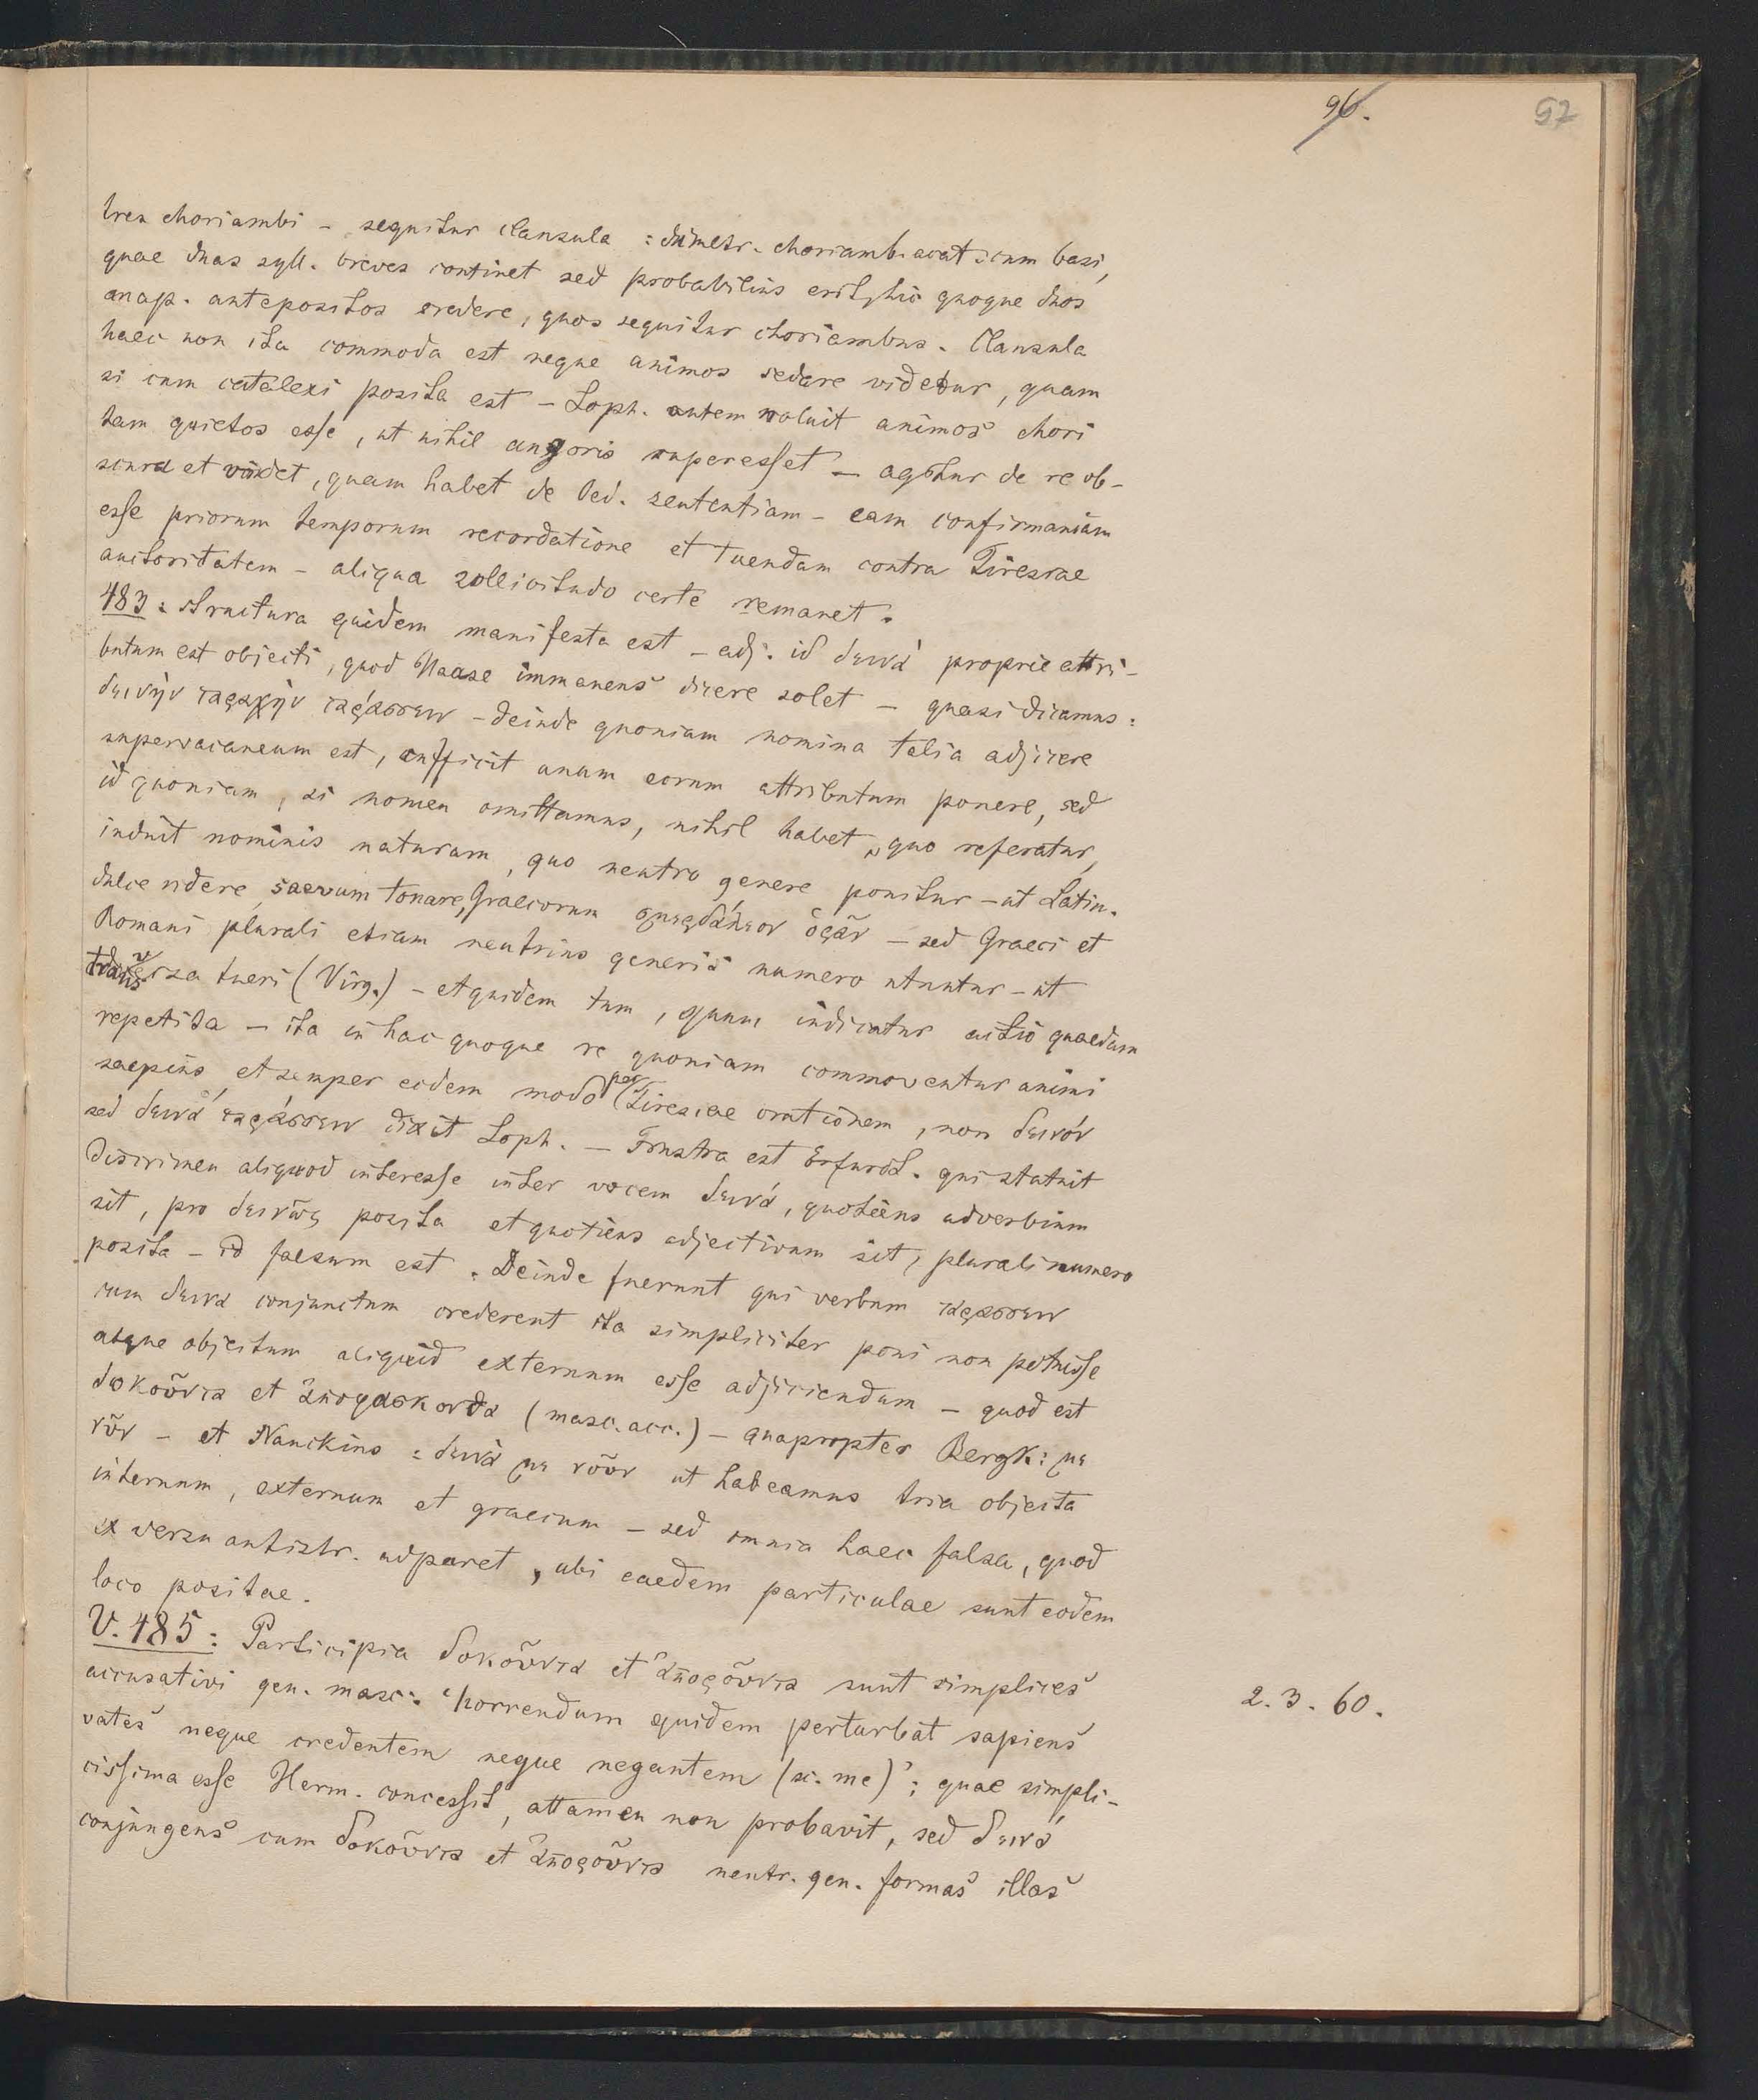 96.
57
tres choriambi – sequitur clausula: dimetr. choriamb. acat. cum basi,
quae duas syll. breves continet sed probabilius erit, hic quoque duos
anap. antepositos credere, quos sequitur choriambus. Clausula
haec non ita commoda est neque animos sedare videtur, quam
si cum catalexi posita est – Soph. autem noluit animos chori
tam quietos esse, ut nihil angoris superesset – agitur de re ob-
scura et videt, quam habet de Oed. sententiam – eam confirmandam
esse priorum temporum recordatione et tuendam contra Tiresiae
auctoritatem – aliqua sollicitudo certe remanet.
483: structura quidem manifesta est – adj. id δεινά proprie attri-
butum est objecti, quod Haase immanens dicere solet – quasi dicamus:
δεινὴν ταραχὴν ταράσσειν – deinde quoniam nomina talia adjicere
supervacaneum est, sufficit unum eorum attributum ponere, sed
id quoniam, si nomen omittamus, nihil habet, quo referatur,
induit nominis naturam, quo neutro genere ponitur – ut Latin.
dulce ridere, saevum tonare, Graecorum σμερδάλεον ὁρᾶν – sed Graeci et
Romani plurali etiam neutrius generis numero utuntur – ut
transversa tueri (Virg.) – et quidem tum, quum indicatur actio quaedam
repetita – ita in hac quoque re quoniam commoventur animi
saepius et semper eodem modo per Tiresiae orationem, non δεινόν
sed δεινά ταράσσειν dixit Soph. – Frustra est Erfurdt. qui statuit
discrimen aliquod interesse inter vocem δεινά, quotiens adverbium
sit, pro δεινῶς posita et quotiens adjectivum sit, plurali numero
posita – id falsum est. Deinde fuerunt qui verbum ταράσσειν
cum δεινά conjunctum crederent ita simpliciter poni non potuisse
atque objectum aliquid externum esse adjiciendum – quod est
δοκοῦντα et ἀποφάσκοντα (masc. acc.) – quapropter Bergk: με
νῦν – et Nauckius: δεινά με νοῦν ut habeamus tria objecta
internum, externum et graecum – sed omnia haec falsa, quod
ex versu antistr. adparet, ubi eaedem particulae sunt eodem
loco positae.
V. 485: Participia δοκοῦντα et ἀποροῦντα sunt simplices
accusativi gen. masc: ‘horrendum quidem perturbat sapiens
vates neque credentem neque negantem (sc. me)’; quae simpli-
cissima esse Herm. concessit, attamen non probavit, sed δεινά
conjungens cum δοκοῦντα et ἀποροῦντα neutr. gen. formas illas
2. 3. 60.